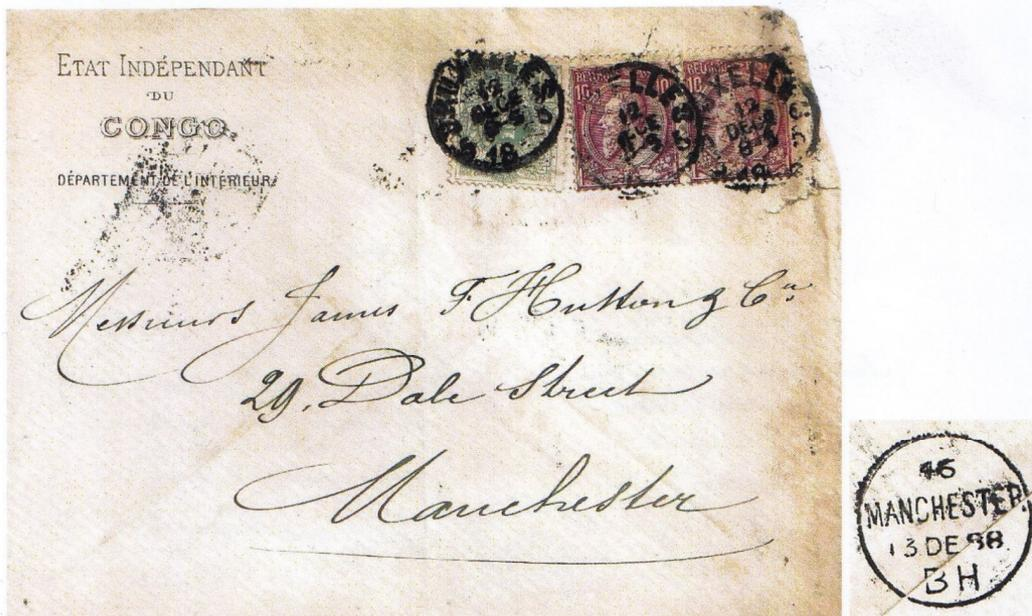 ETAT INDÉPENDANT
DU
CONGO.
DÉPARTEMENT DE L'INTÉRIEUR.
BRUXELLES
12
DECE
18
BELGIQUE
10
10
Messieurs James F Hutton & Cº
29. Dale Street
Manchester
46
MANCHESTER.
13 DE 88
BH